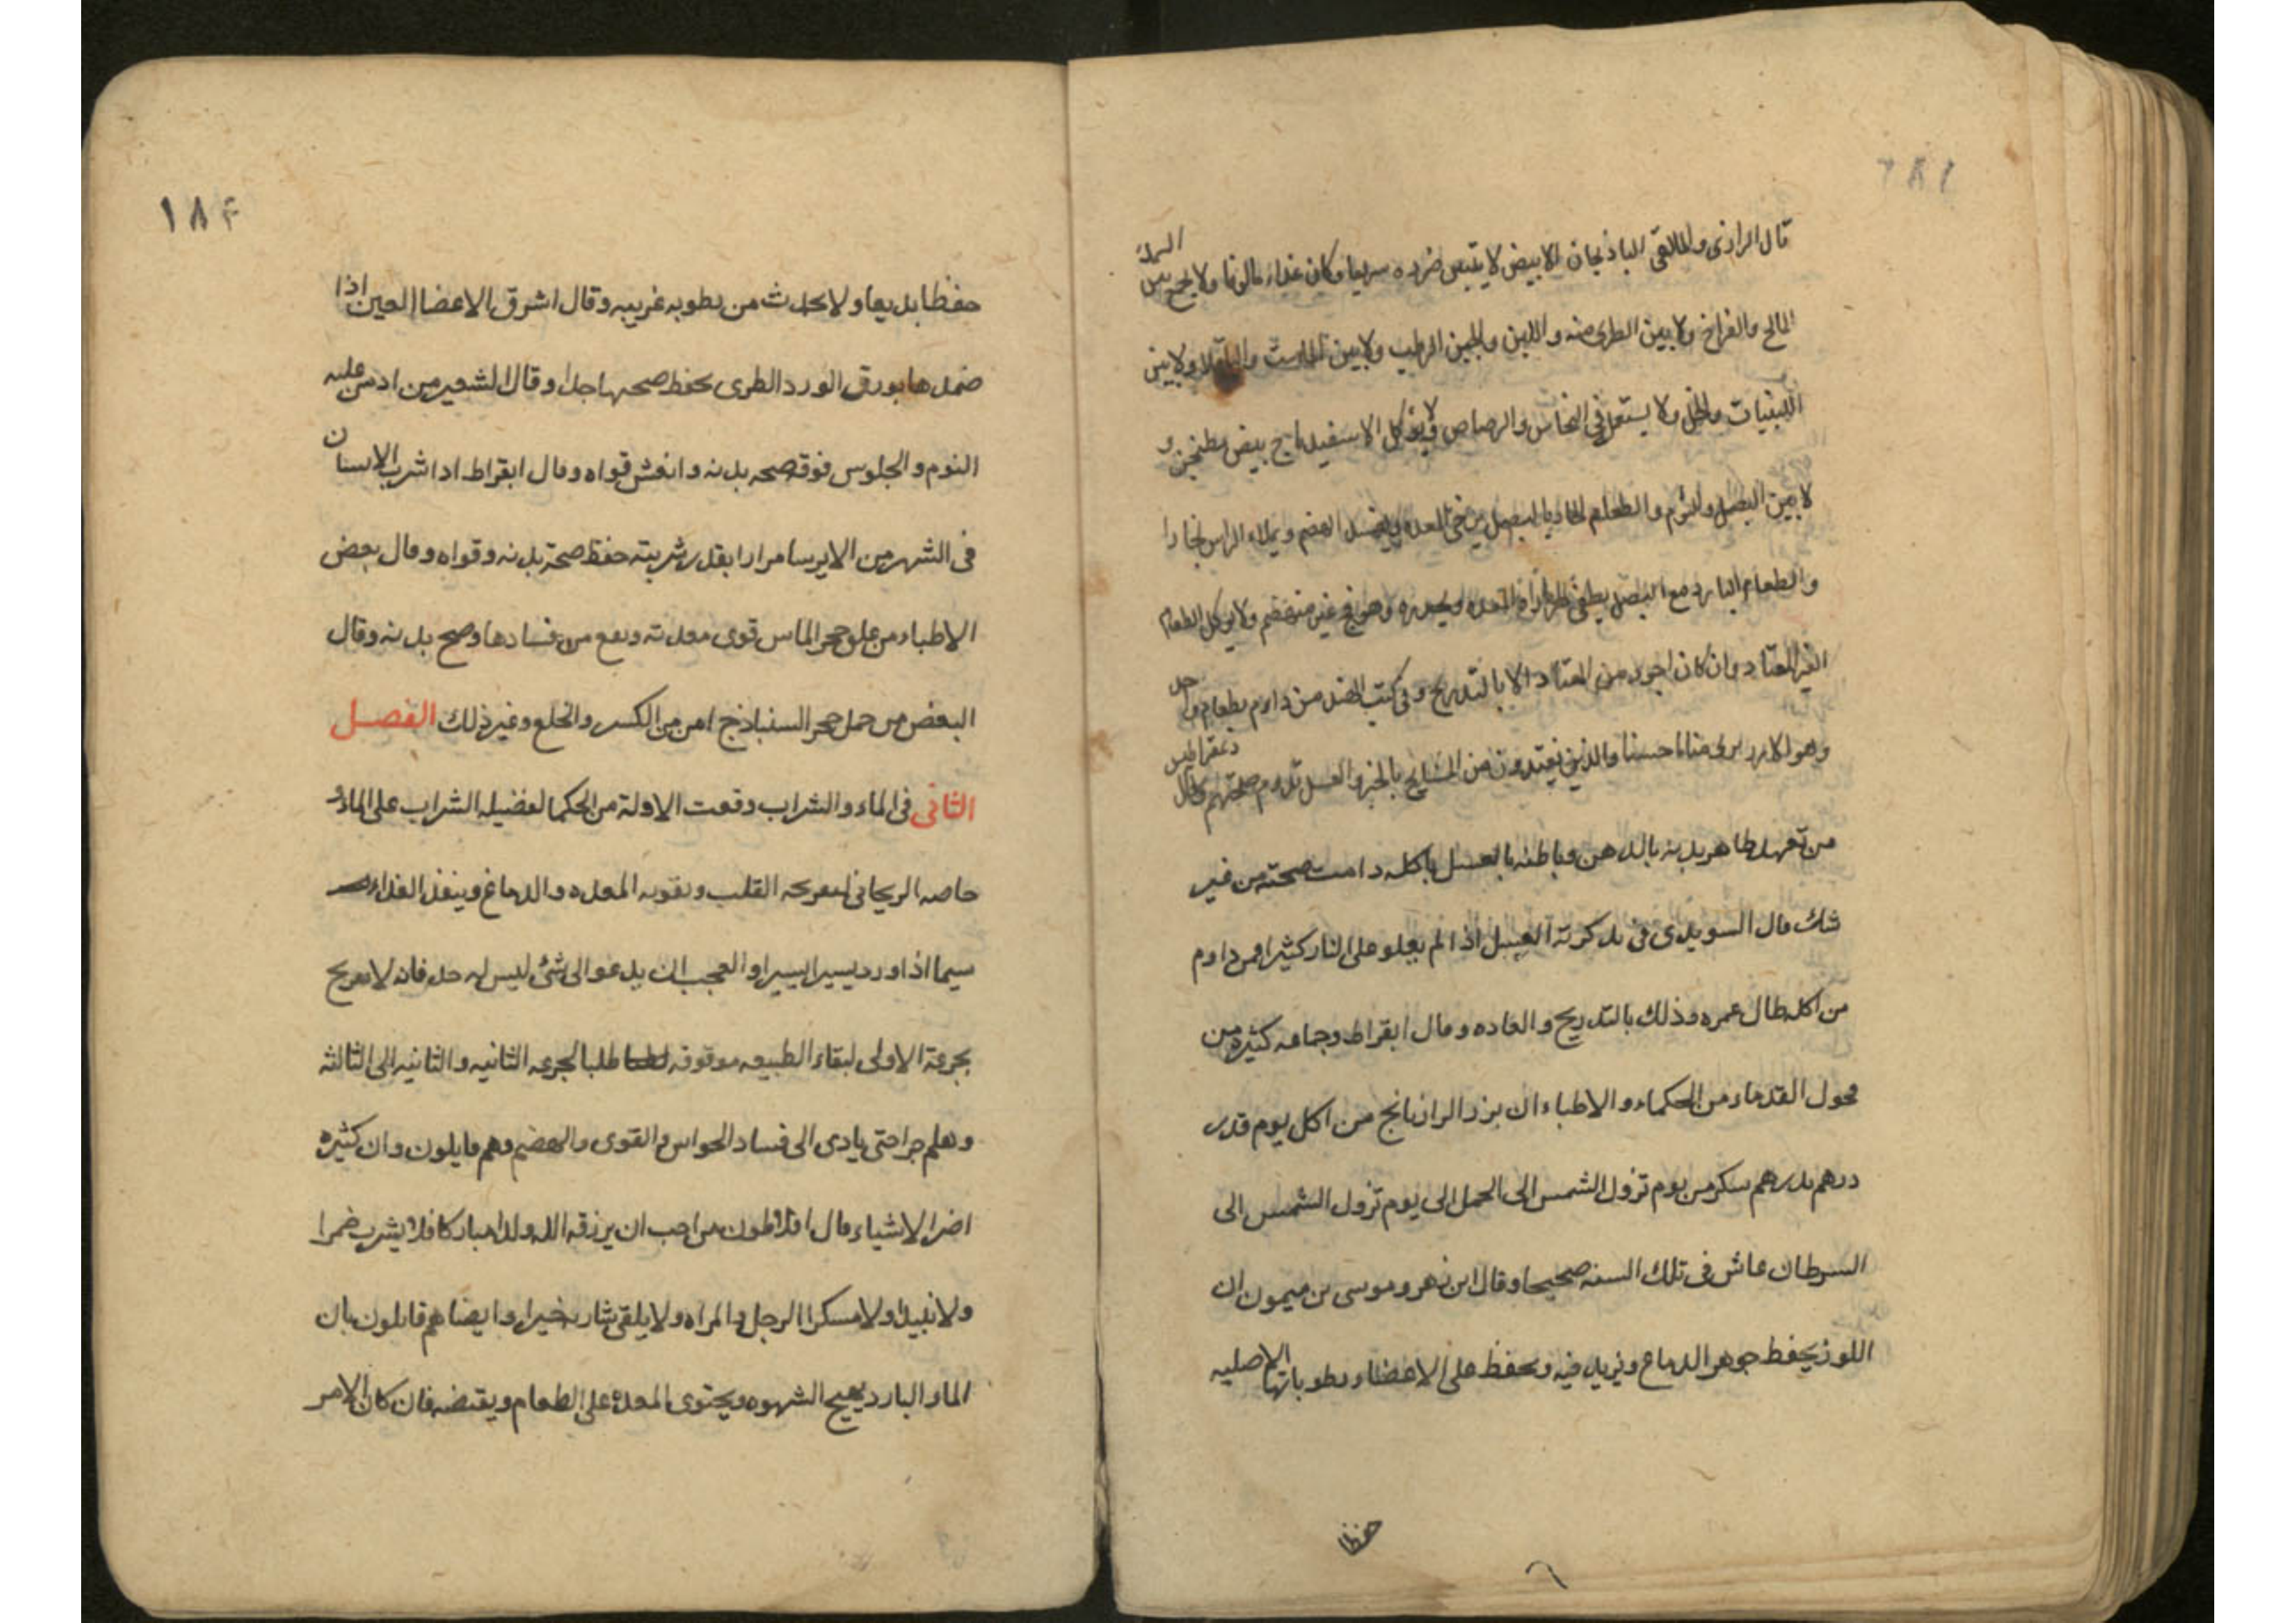 قال الرازى والمالقى الباذنجان الابيض لا يتبين ضرره سريعا وكان غذاء مالوفا ولا يجمع بين السمك
المالح والفراخ ولا بين الطرى منه واللبن والجبن الرطب ولا بين الماست والباقلا ولا بين
اللبنيات والخل ولا يستعمل فى النحاس والرصاص ولا يؤكل الاسفيداج بيض مطنجن و
لا بين البصل والثوم والطعام الحار بالبصل يرخى المعده ويفسد الهضم ويملاء الراس بخارا
والطعام البارد مع البصل يطفى المعده ويحدره وهو فج غير منهضم ولا يوكل الطعام
الغير المعتاد وان كان اجود من المعتاد الا بالتدريج وفى كتب الهند من داوم بطعام واحد
وهو الارز يرى مناما حسنا والذين يغتدون من المشايخ بالخبز والعسل تدوم صحتهم وقال دمقراطيس
من تعهد ظاهر بدنه بالدهن وباطنه بالعسل باكله دامت صحته من غير
شك قال السويدى فى تذكرته العسل اذا لم يعلو على النار كثيرا فمن داوم
من اكله طال عمره وذلك بالتدريج والعاده وقال ابقراط وجماعه كثيره من
محول القدماء من الحكماء والاطباء ان بزر الرازيانج من اكل يوم قدر
درهم بدرهم سكر من يوم تزول الشمس الى الحمل الى يوم تزول الشمس الى
السرطان عاش فى تلك السنه صحيحا وقال ابن زهر وموسى بن ميمون ان
اللوز يحفظ جوهر الدماغ ويزيد فيه ويحفظ على الاعضاء رطوباتها الاصليه
حفظا
١٨٤
حفظا بديعا ولا يحدث من رطوبه غريبه وقال اشرق الاعضا العين اذا
ضمدها بورق الورد الطرى يحفظ صحتها جدا وقال الشعير من ادمن عليه
النوم والجلوس فوقه صحه بدنه وانعش قواه وقال ابقراط اذا شرب الانسان
فى الشهر من الايرسا مرارا بقدر شربته حفظ صحة بدنه وقواه وقال بعض
الاطباء من علق حجر الماس قوى معدته ونفع من فسادها وصح بدنه وقال
البعض من حمل حجر السنباذج امن من الكسر والخلع وغير ذلك الفصل
الثانى فى الماء والشراب وقعت الاولة من الحكما لفضيله الشراب على الماء و
خاصه الريحانى لتفريحه القلب وتقويه المعده والدماغ وينفذ الغذاء
سيما اذا ورد يسيرا يسيرا والعجب ان يدعو الى شئ ليس له حد فانه لا تفريح
بجرعة الاولى لبقاء الطبيعه موقوفه طلبا لجرعه الثانيه والثانيه الى الثالثه
وهلم جرا حتى يادى الى فساد الحواس والقوى والهضم وهم قايلون وان كثيره
اضر الاشياء قال افلاطون من احب ان يرزقه الله ولدا مباركا فلا يشرب خمرا
ولا نبيذا ولا مسكرا الرجل والمراه ولا يلقى شاربه خيرا وايضا هم قايلون بان
الماء البارد يهيج الشهوه ويحتوى المعده على الطعام ويقتضه فان كان الامر